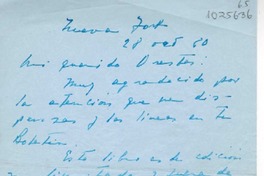 65
1025636
Nueva York
28 oct 60
Mi querido Orestes:
Muy agradecido por
la atención que me dis-
pensas y las líneas en tu
Boletín.
Este libro es de edición